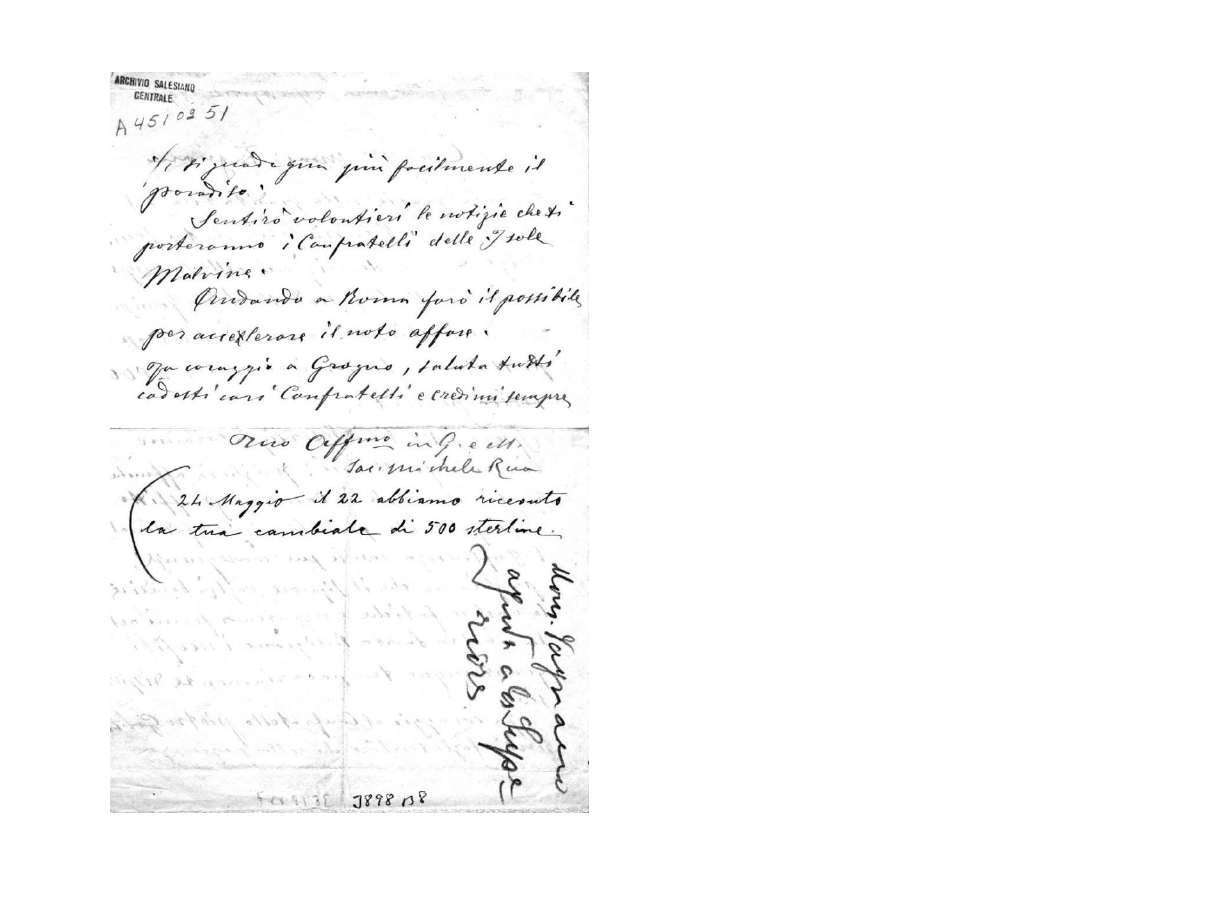 ARCHIVIO SALESIANO
CENTRALE
A 451 02 51
si guadagna più facilmente il
paradiso.
Sentirò volontieri le notizie che ti
porteranno i Confratelli delle Isole
Malvine.
Andando a Roma farò il possibile
per accellerare il noto affare.
Fa coraggio a Grogno, saluta tutti
codesti cari Confratelli e credimi sempre
Tuo Affmo in G. e M.
Sac. Michele Rua
24 Maggio il 22 abbiamo ricevuto
la tua cambiale di 500 sterline.
Mons. Fagnano
ayuda a los Supe
riores
3898 B8